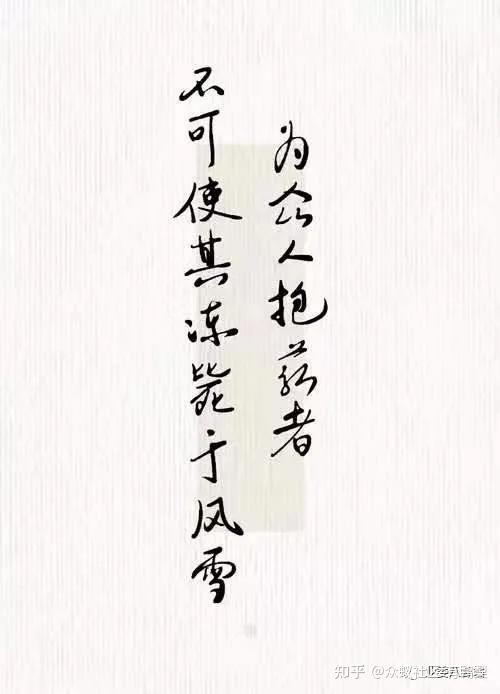 为众人抱薪者
不可使其冻毙于风雪
知乎 @众蚁社区